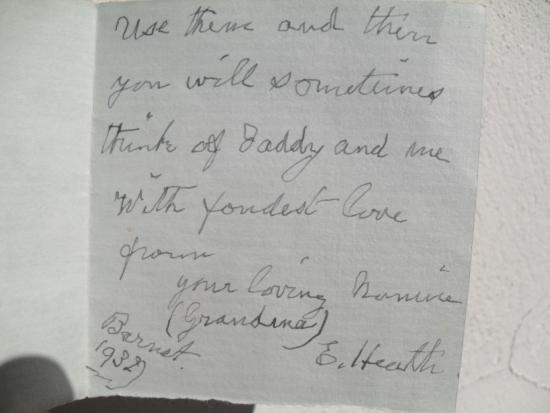 Use them and then
you will sometimes
think of Daddy and me
With fondest love
from
your loving Nannie
(Grandma)
Barnet.
1932)
E. Heath.